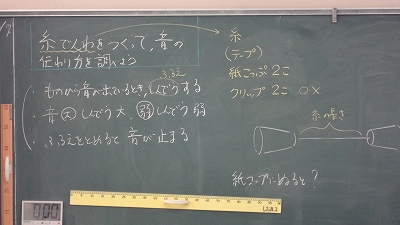 糸でんわをつくって、音の
伝わり方を調べよう
ふるえ
・ものから音が出ているとき、しんどうする
・音 大 しんどう 大、弱 しんどう 弱
・ふるえをとめると 音が止まる
糸
(テープ)
紙こっぷ 2こ
クリップ 2こ ○×
糸の長さ
紙コップにぬると?
00:00